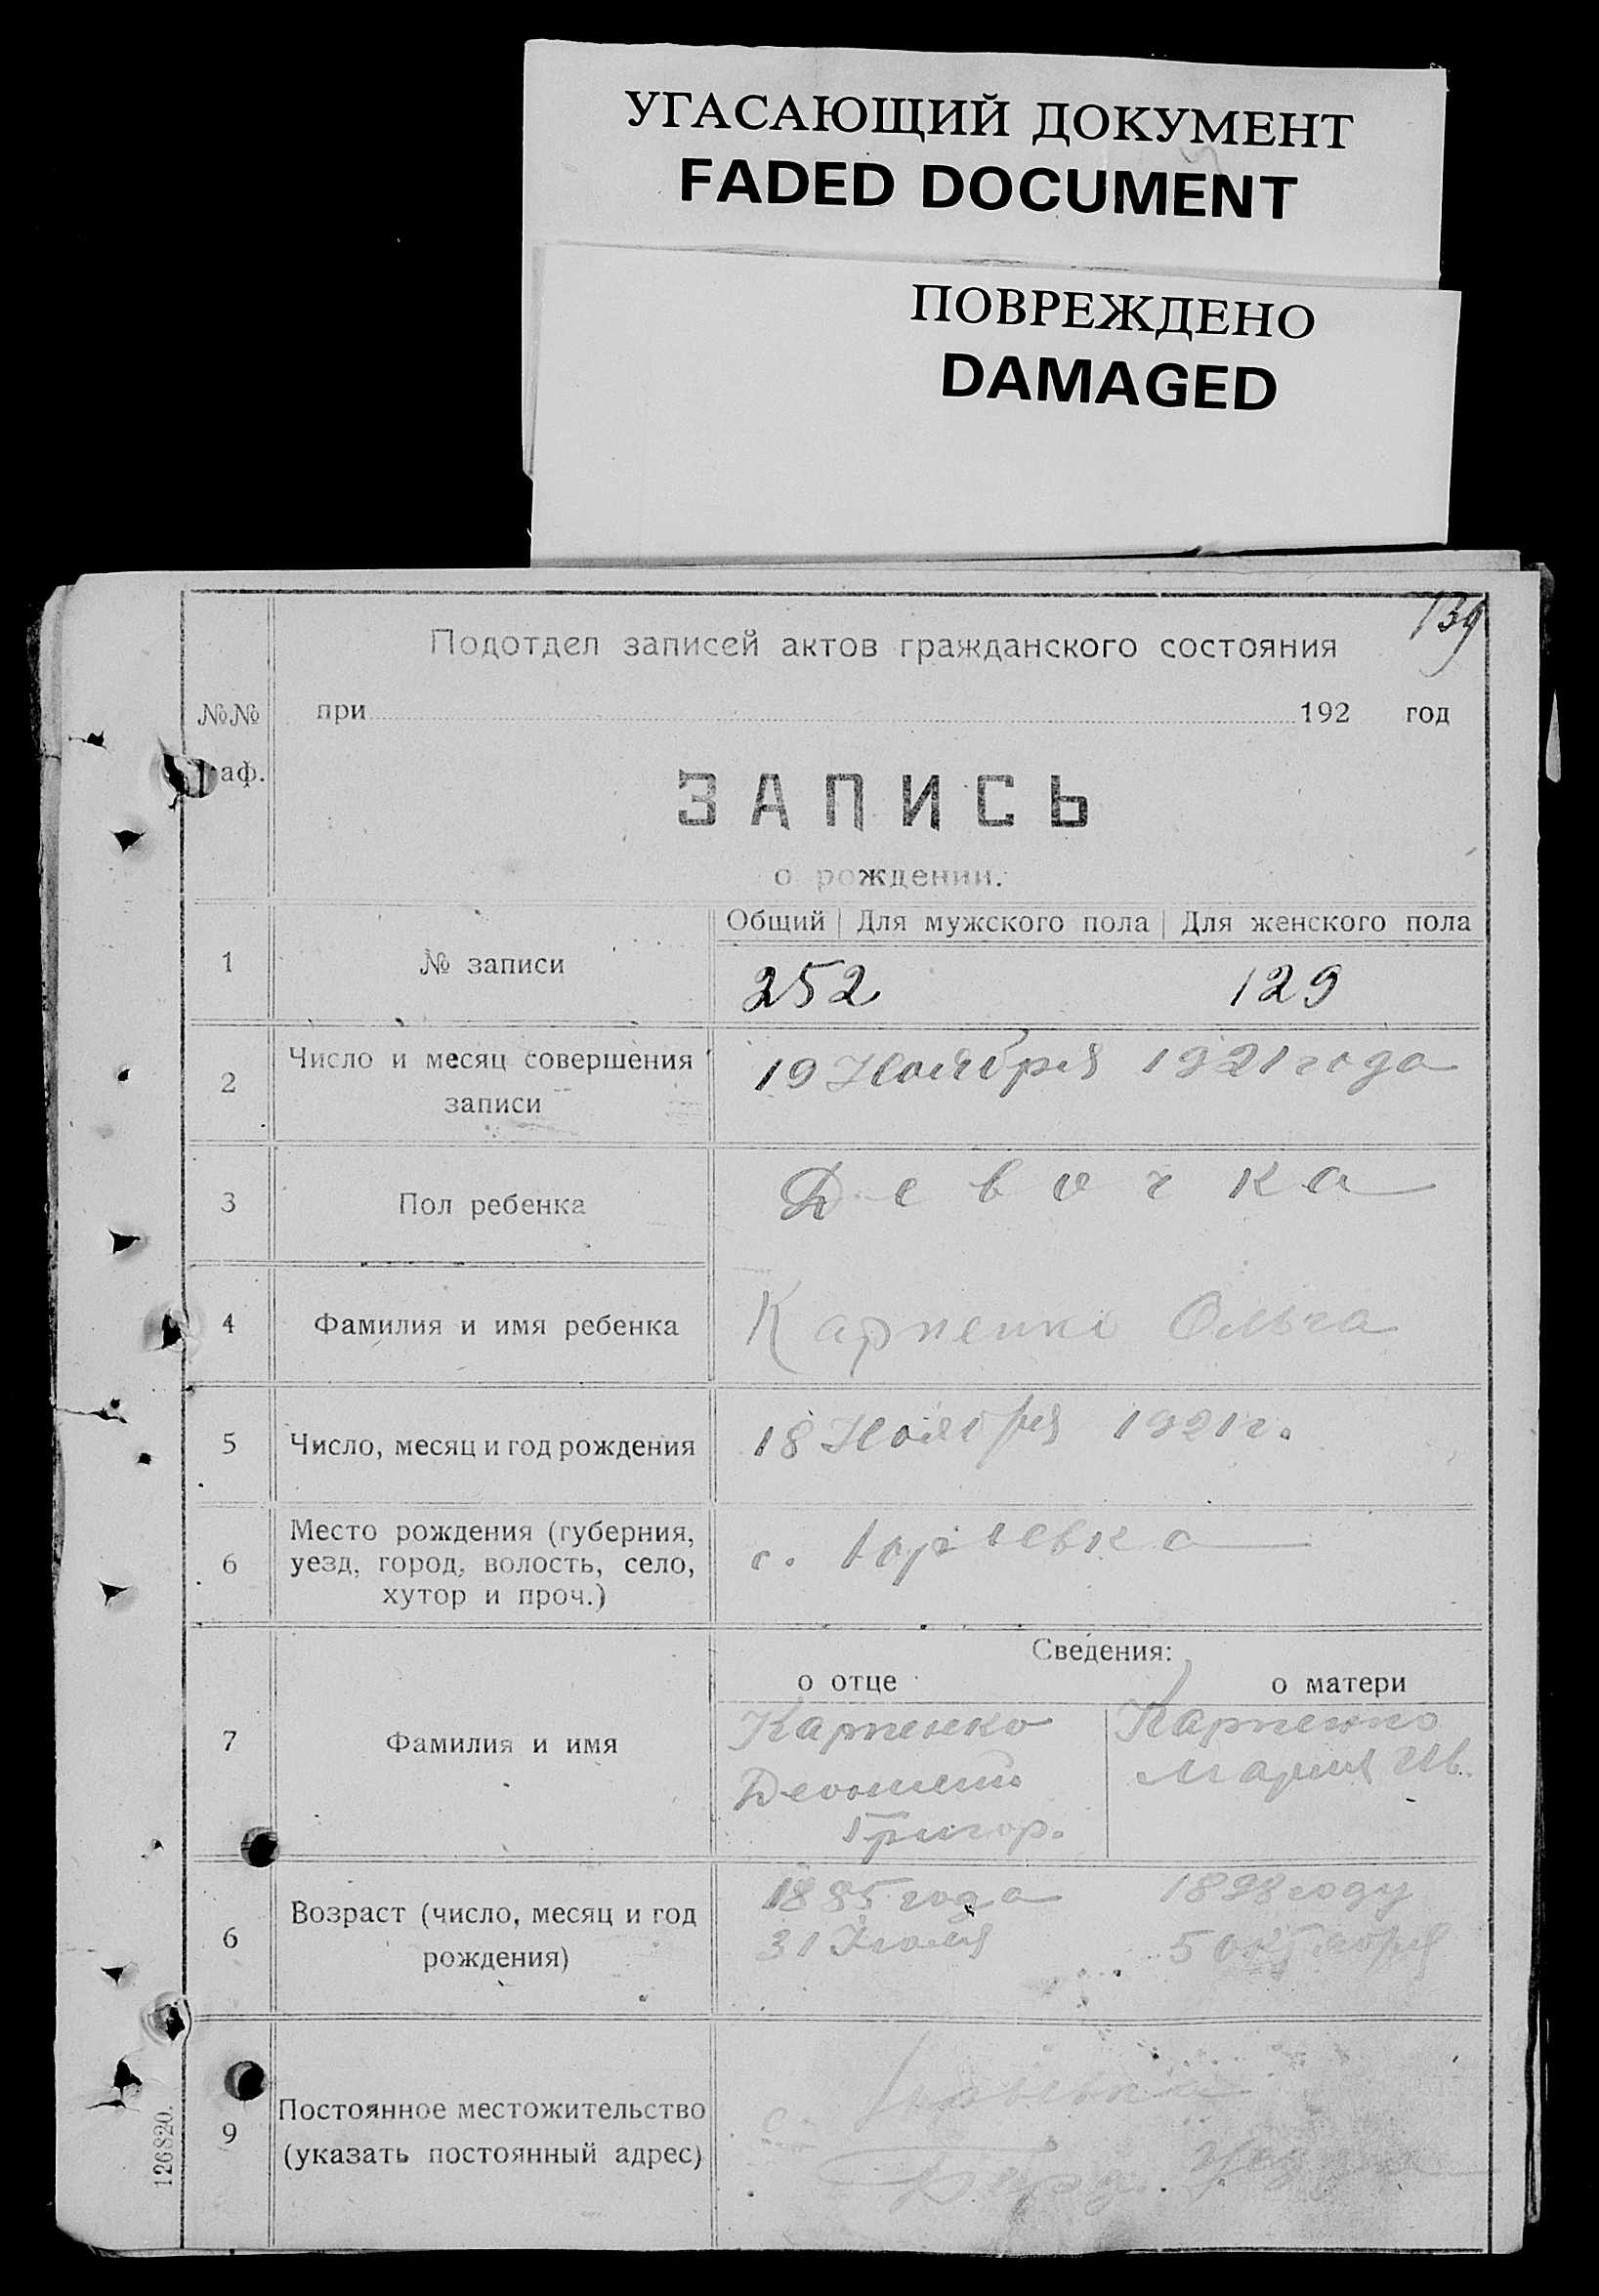 УГАСАЮЩИЙ ДОКУМЕНТ
FADED DOCUMENT
ПОВРЕЖДЕНО
DAMAGED
139
Подотдел записей актов гражданского состояния
№№ при 192 год
аф.
ЗАПИСЬ
о рождении.
Общий Для мужского пола Для женского пола
1 № записи 252 129
2 Число и месяц совершения
записи
19 Ноября 1921 года
3 Пол ребенка Девочка
4 Фамилия и имя ребенка Карпенко Ольга
5 Число, месяц и год рождения 18 Ноября 1921 г.
6 Место рождения (губерния,
уезд, город, волость, село,
хутор и проч.)
с. Юрьевка
Сведения:
о отце о матери
7 Фамилия и имя
Карпенко
Григор.
Карпенко
Мария Ив.
6 Возраст (число, месяц и год
рождения)
1885 года
31 Июля
1898 году
5 октября
9 Постоянное местожительство
(указать постоянный адрес)
с.
Берд. уезда
126820.